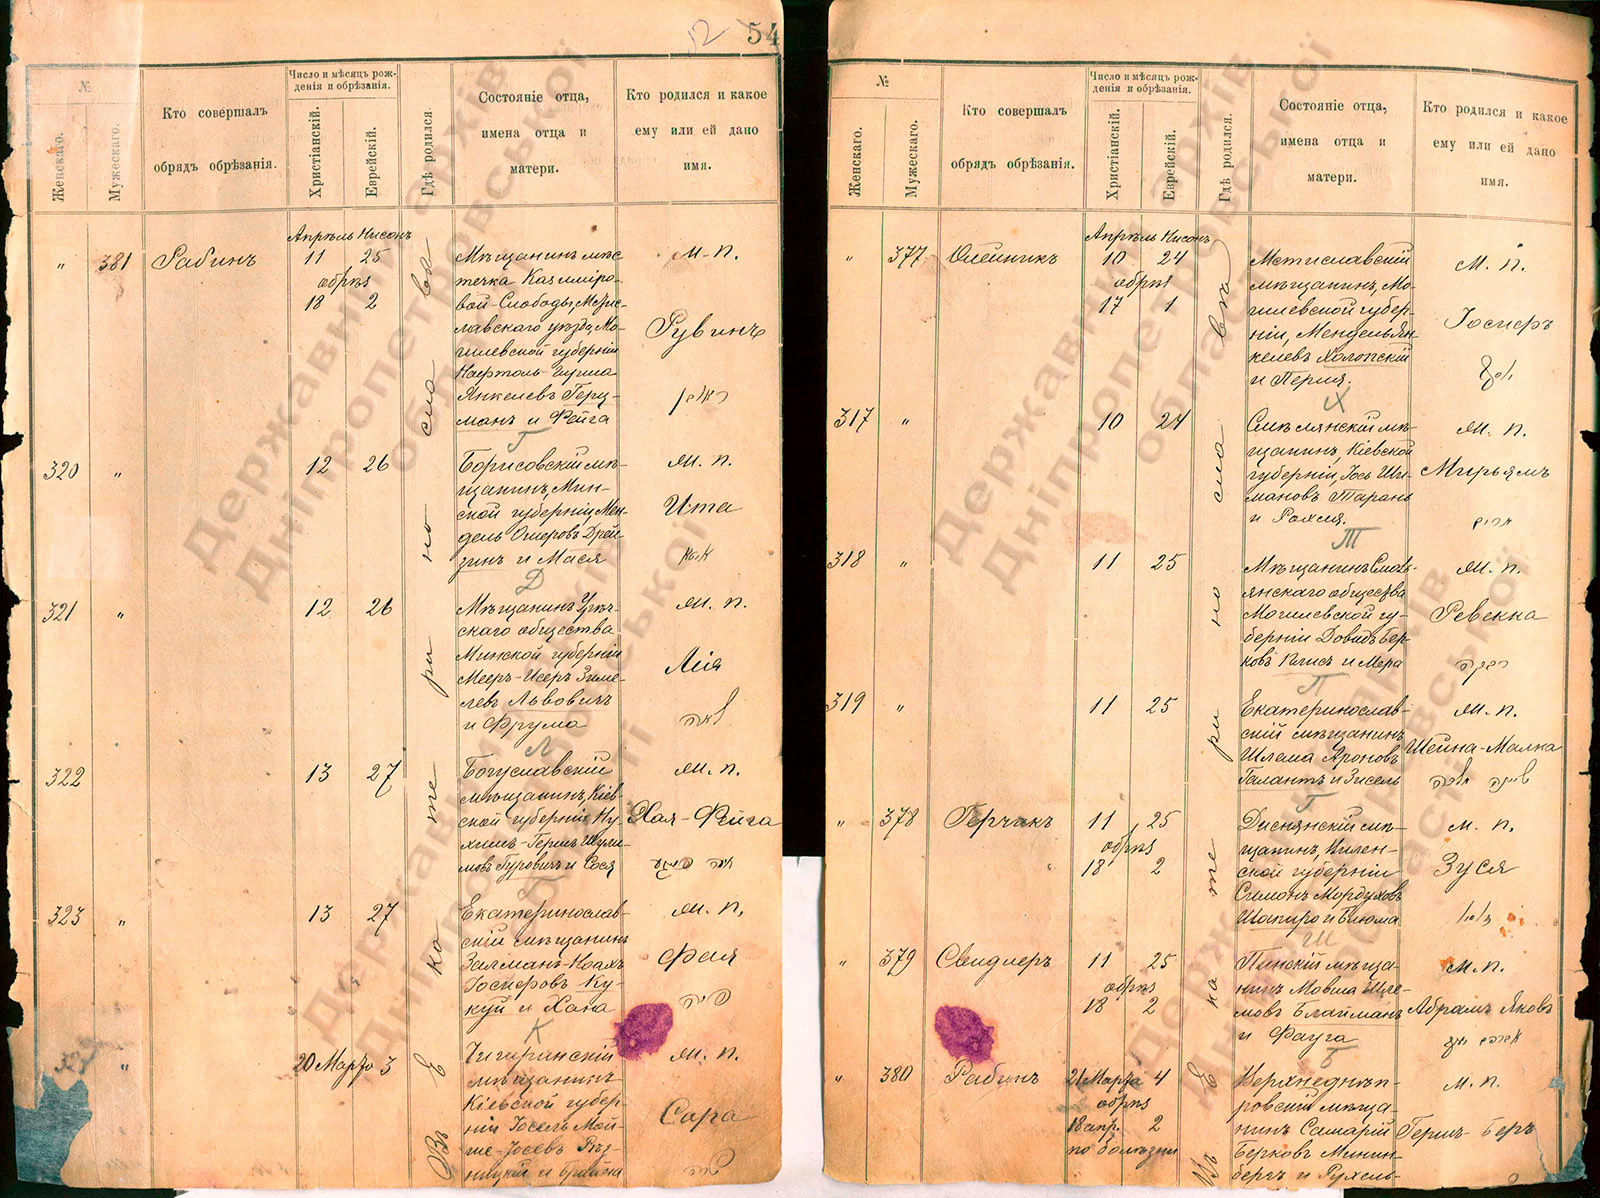 54
№
Женскаго.
Мужескаго.
Кто совершалъ
обрядъ обрѣзанія.
Число и мѣсяцъ рож-
денія и обрѣзанія.
Христіанскій.
Еврейскій.
Гдѣ родился.
Состояніе отца,
имена отца и
матери.
Кто родился и какое
ему или ей дано
имя.
Въ Екатеринославѣ
Апрѣль Нисонъ
" 381 Рабинъ 11 25
обрѣз
18 2
Мѣщанинъ мѣс
течка Казиміро-
вой-Слободы, Мстис-
лавскаго уѣзда, Мо-
гилевской губерніи
Нафтоль-Гирша
Янкелевъ Герц-
манъ и Фейга
М. п.
Рувинъ
ראובן
Г
320 " 12 26
Борисовскій мѣ-
щанинъ, Мин-
ской губерніи Мен-
дель Омеровъ Дрей-
зинъ и Мася
М. п.
Ита
Д
321 " 12 26
Мѣщанинъ
скаго общества
Минской губерніи
Мееръ-Исеръ Зиме-
левъ Львовичъ
и Фрума
М. п.
Лея
לאה
Л
322 13 27
Богуславскій
мѣщанинъ, Кіев-
ской губерніи Ну-
химъ-Гершъ Шули-
мовъ Гуровичъ и Сося
М. п.
Хая-Фейга
חיה פייגע
Г
323 " 13 27
Екатеринослав-
скій мѣщанинъ
Залманъ-Ноахъ
Іосифовъ Ку-
куй и Хана
М. п.
Фая
פייה
К
324 " 20 Марта 3
Чигиринскій
мѣщанинъ
Кіевской губер-
ніи Іосель Мой-
ше-Іосевъ Рѣз-
ницкій и Брайна
М. п.
Сора
שרה
№
Женскаго.
Мужескаго.
Кто совершалъ
обрядъ обрѣзанія.
Число и мѣсяцъ рож-
денія и обрѣзанія.
Христіанскій.
Еврейскій.
Гдѣ родился.
Состояніе отца,
имена отца и
матери.
Кто родился и какое
ему или ей дано
имя.
Въ Екатеринославѣ
Апрѣль Нисонъ
" 377 Олейникъ 10 24
обрѣз
17 1
Мстиславскій
мѣщанинъ, Мо-
гилевской губер-
ніи, Мендель Ян-
келевъ Холопскій
и Перля.
М. п.
Іосифъ
יוסף
Х
317 " 10 24
Смѣлянскій мѣ-
щанинъ, Кіевской
губерніи, Іось Ши-
мановъ Таранъ
и Рохля.
М. п.
Мирьямъ
מרים
Т
318 " 11 25
Мѣщанинъ Слав-
янскаго общества
Могилевской гу-
берніи Довидъ Бер-
ковъ и Мера
М. п.
Ревекка
רבקה
П
319 " 11 25
Екатеринослав-
скій мѣщанинъ
Шлама Ароновъ
Галантъ и Зисель
М. п.
Шейна-Малка
שיינה מלכה
Г
" 378 Герчикъ 11 25
обрѣз
18 2
Диснянскій мѣ-
щанинъ, Вилен-
ской губерніи
Симонъ Мордуховъ
Шапиро и Блюма
М. п.
Зуся
זוסיא
Ш
" 379 Свидлеръ 11 25
обрѣз
18 2
Пинскій мѣща-
нинъ Мовша Шле-
мовъ Блайманъ
и Фауга
М. п.
Абрамъ Яковъ
אברהם יעקב
Б
" 380 Рабинъ 21 Марта 4
обрѣз
18 апр. 2
по болѣзни
Верхнеднѣп-
ровскій мѣща-
нинъ Самарій
Берковъ Минин-
бергъ и Рухель-
М. п.
Гершъ-Беръ
Державний архів
Дніпропетровської
області